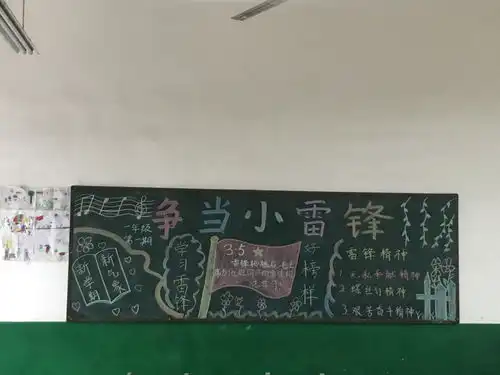 争当小雷锋
一年级
第一期
新学期
新气象
学习雷锋
3.5
好榜样
雷锋精神
1.无私奉献精神
2.螺丝钉精神
3.艰苦奋斗精神